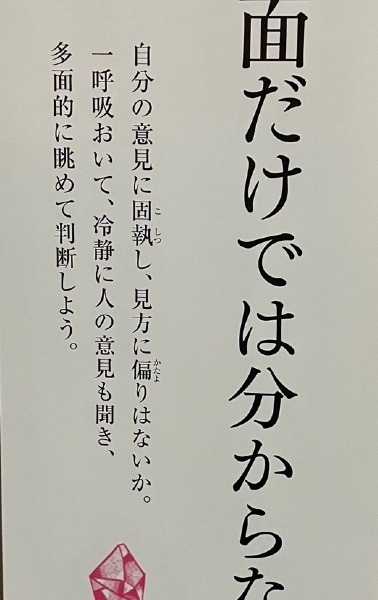 面だけでは分からな
自分の意見に固執し、見方に偏りはないか。
こしつ
かたよ
一呼吸おいて、冷静に人の意見も聞き、
多面的に眺めて判断しよう。